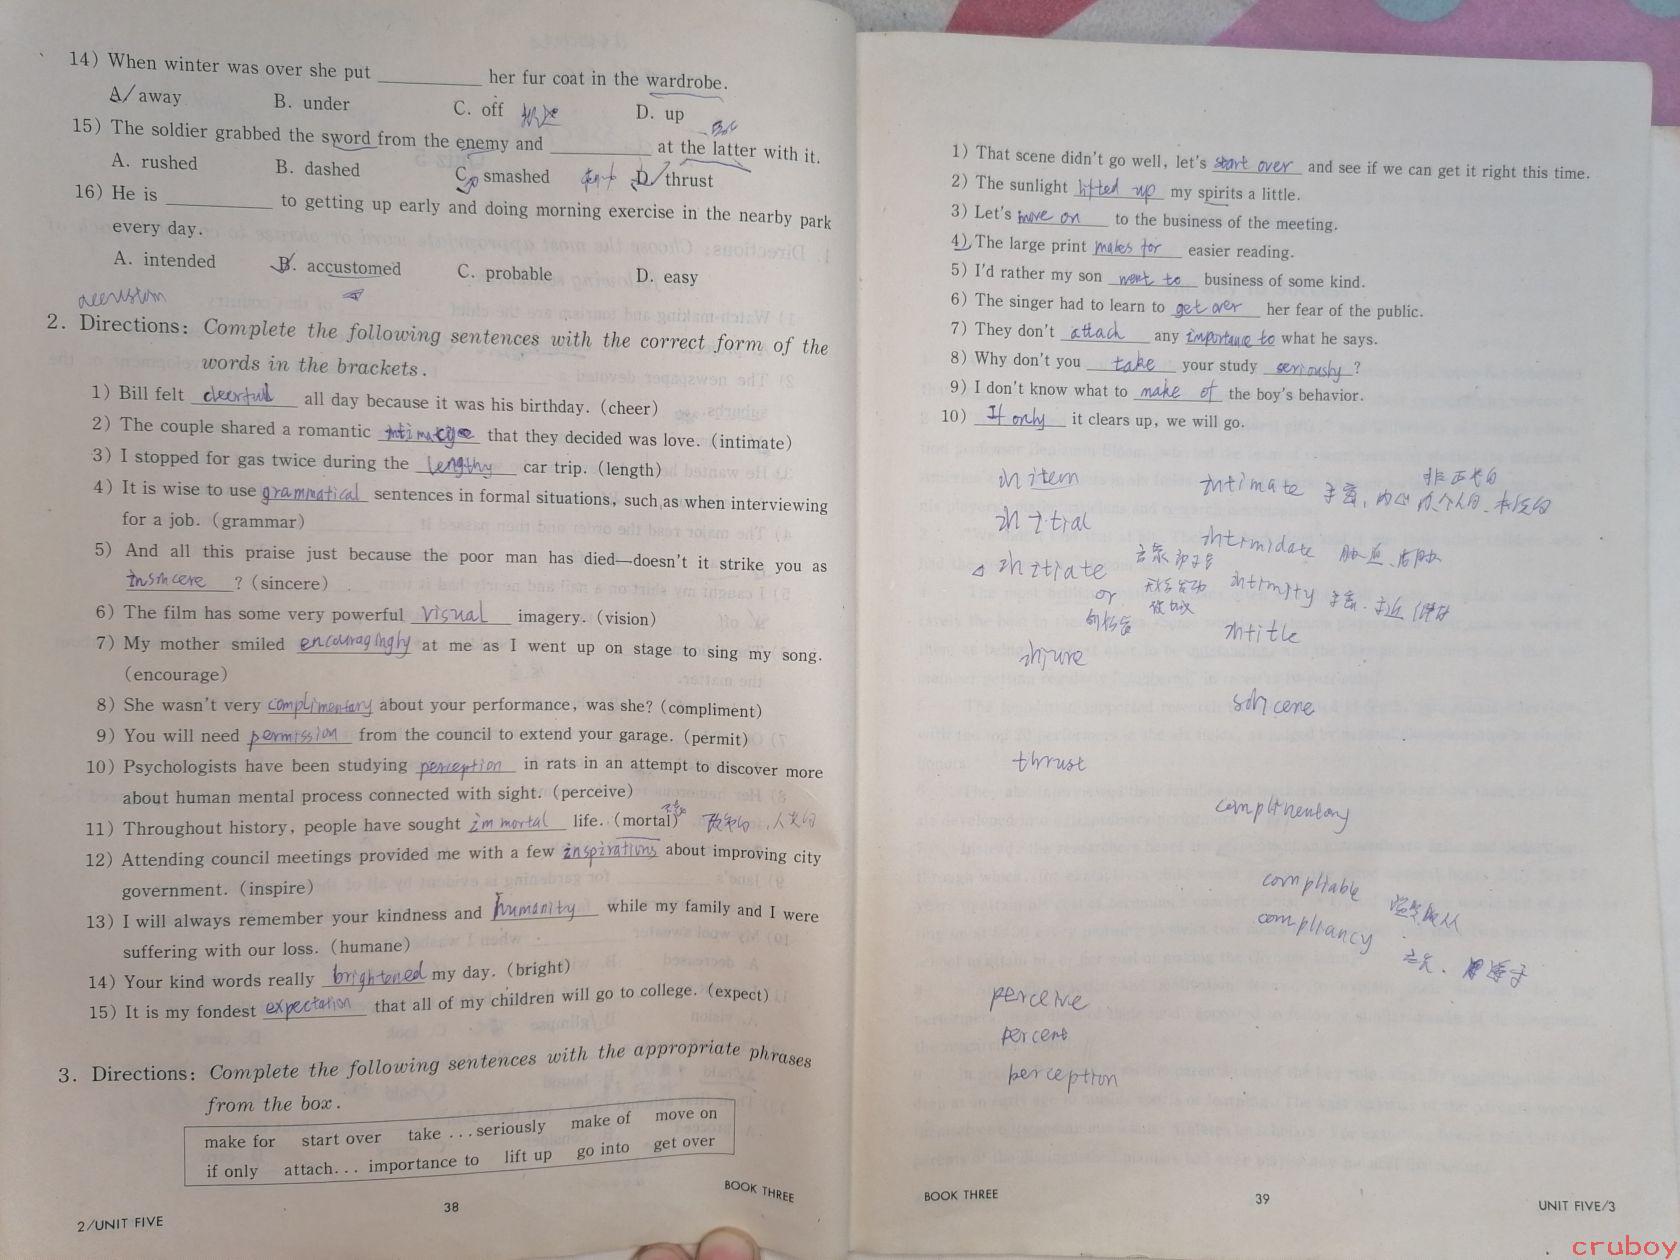 14) When winter was over she put __________ her fur coat in the wardrobe.
A. away B. under C. off D. up
15) The soldier grabbed the sword from the enemy and __________ at the latter with it.
A. rushed B. dashed C. smashed D. thrust
16) He is __________ to getting up early and doing morning exercise in the nearby park
every day.
A. intended B. accustomed C. probable D. easy
2. Directions: Complete the following sentences with the correct form of the
words in the brackets.
1) Bill felt all day because it was his birthday. (cheer)
2) The couple shared a romantic that they decided was love. (intimate)
3) I stopped for gas twice during the lengthy car trip. (length)
4) It is wise to use grammatical sentences in formal situations, such as when interviewing
for a job. (grammar)
5) And all this praise just because the poor man has died—doesn't it strike you as
insincere ? (sincere)
6) The film has some very powerful visual imagery. (vision)
7) My mother smiled encouragingly at me as I went up on stage to sing my song.
(encourage)
8) She wasn't very complimentary about your performance, was she? (compliment)
9) You will need permission from the council to extend your garage. (permit)
10) Psychologists have been studying perception in rats in an attempt to discover more
about human mental process connected with sight. (perceive)
11) Throughout history, people have sought immortal life. (mortal)
12) Attending council meetings provided me with a few inspirations about improving city
government. (inspire)
13) I will always remember your kindness and humanity while my family and I were
suffering with our loss. (humane)
14) Your kind words really brightened my day. (bright)
15) It is my fondest expectation that all of my children will go to college. (expect)
3. Directions: Complete the following sentences with the appropriate phrases
from the box.
make for start over take ...seriously make of move on
if only attach... importance to lift up go into get over
BOOK THREE
38
2/UNIT FIVE
1) That scene didn't go well, let's start over and see if we can get it right this time.
2) The sunlight lifted up my spirits a little.
3) Let's move on to the business of the meeting.
4) The large print makes for easier reading.
5) I'd rather my son went to business of some kind.
6) The singer had to learn to get over her fear of the public.
7) They don't attach any importance to what he says.
8) Why don't you take your study seriously ?
9) I don't know what to make of the boy's behavior.
10) If only it clears up, we will go.
initial
intimate
initiate
or
intitle
injure
thrust
compliable
compliancy
perceive
percent
perception
BOOK THREE
39
UNIT FIVE/3
cruboy